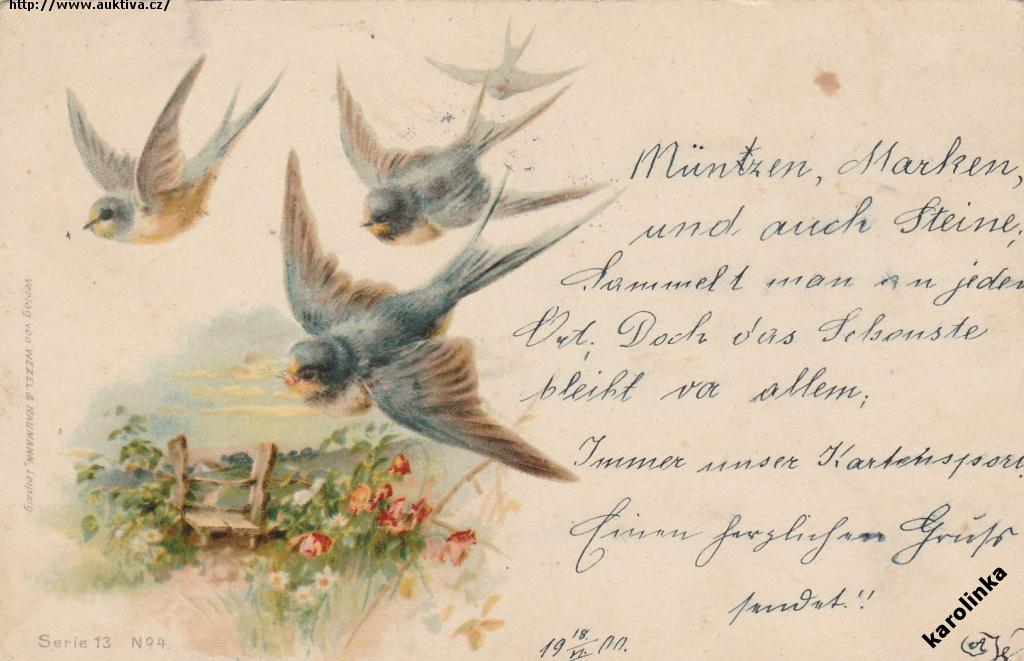 http://www.auktiva.cz/
Müntzen, Marken,
und auch Steine;
Sammelt man an jeden
Ort; Doch das Schonste
bleibt vo allem;
Immer unser Kartensport
Einen herzlichen Gruss
sendet!!
19 18/II. 00.
Verlag von WEZEL & NAUMANN, Leipzig.
Serie 13 No 4.
karolinka